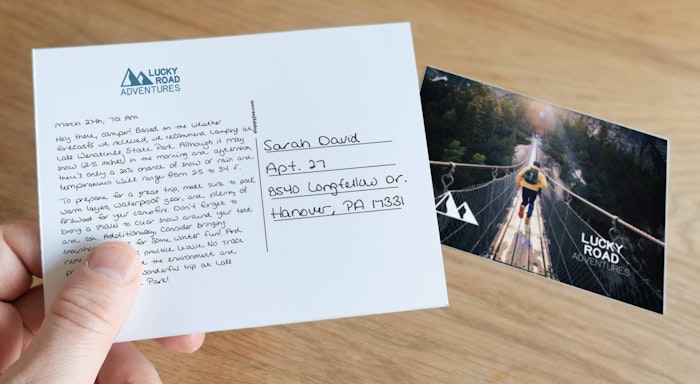 LUCKY
ROAD
ADVENTURES
March 27th, 7:01 AM
Hey there, camper! Based on the weather
forecasts we received, we recommend camping at
Lake Wenatchee State Park. Although it may
snow (2.5 inches) in the morning and afternoon,
there's only a 20% chance of snow or rain and
temperatures will range from 25 to 34 F.
To prepare for a great trip, make sure to pack
warm layers, waterproof gear, and plenty of
firewood for your campfire. Don't forget to
bring a shovel to clear snow around your tent
and car. Additionally, consider bringing
for some winter fun! And
practice Leave No Trace
the environment and
wonderful trip at Lake
Park!
Sarah David
Apt. 27
8540 Longfellow Dr.
Hanover, PA 17331
LUCKY
ROAD
ADVENTURES